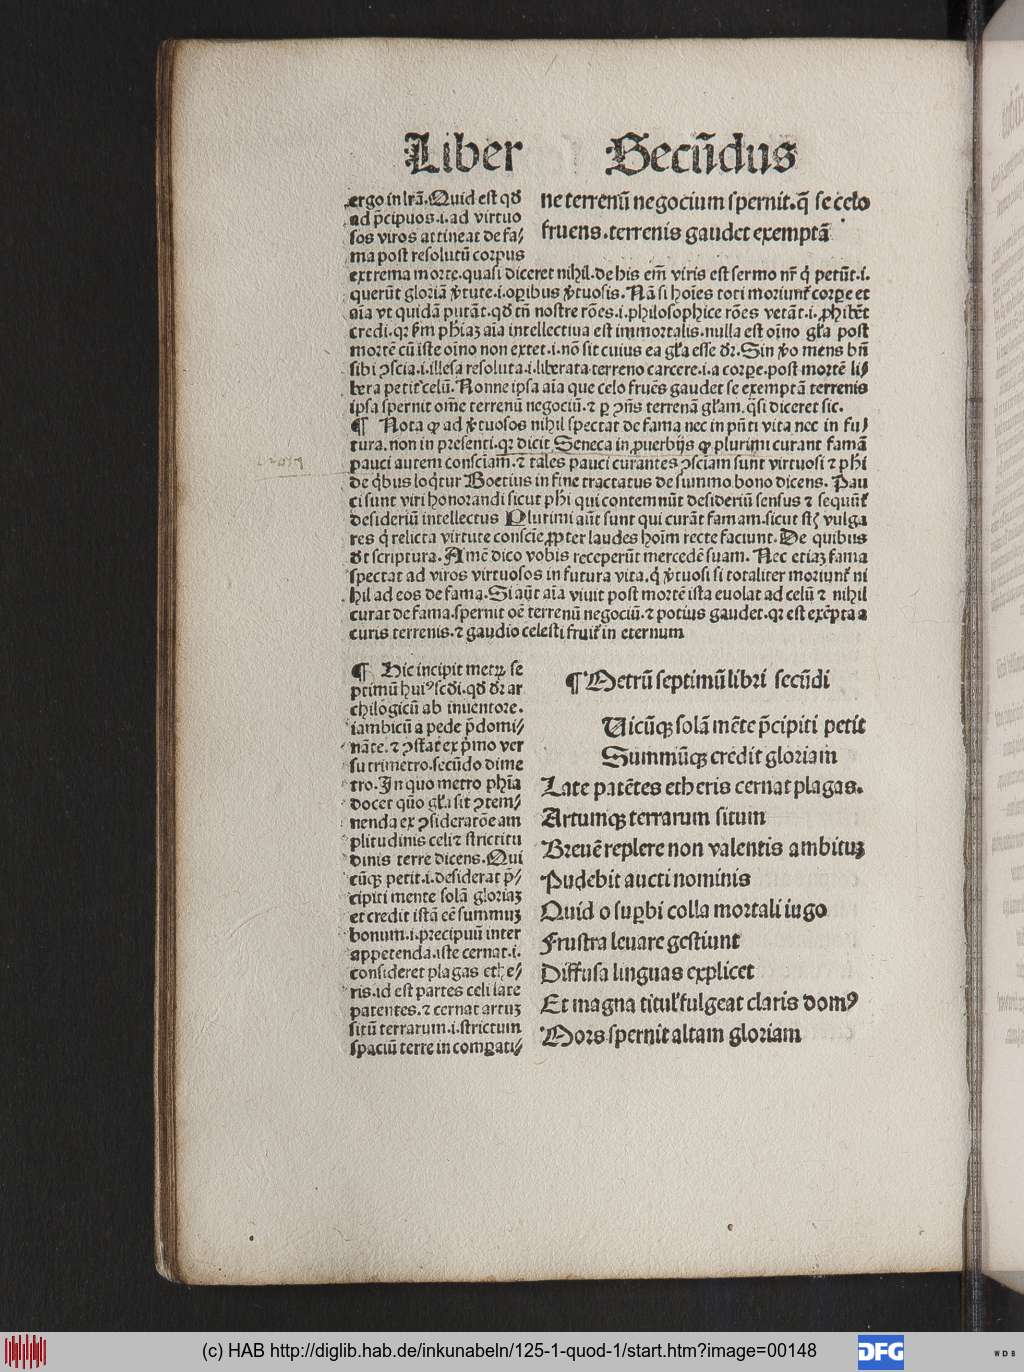 Liber Secũdus
ergo in lrã. Quid est qð
ad p̃cipuos .i. ad virtuo
sos viros attineat de fa⸗
ma post resolutũ corpus
ne terrenũ negocium spernit. q̃ se celo
fruens. terrenis gaudet exemptã
extrema morte. quasi diceret nihil. de his em̃ viris est sermo nr̃ q̇ petũt .i.
querũt gloriã v̾tute .i. oꝑibus v̾tuosis. Nã si hoĩes toti moriunt᷑ corꝑe et
aĩa vt quidã putãt. qð tñ nostre rões .i. philosophice rões vetãt .i. ꝓhibẽt
credi. qꝛ ẜm ph̃iaꝫ aĩa intellectiua est immortalis. nulla est oĩno gl̃a post
mortẽ cũ iste oĩno non extet .i. nõ sit cuius ea gl̃a esse dr̃. Sin v̾o mens bñ
sibi ꝯscia .i. illesa resoluta .i. liberata terreno carcere .i. a corꝑe. post mortẽ li⸗
bera petit celũ. Nonne ipsa aĩa que celo fruẽs gaudet se exemptã terrenis
ipsa spernit om̃e terrenũ negociũ. ⁊ ꝑ ꝯñs terrenã gl̃am. q̃si diceret sic.
¶ Nota ꝙ ad v̾tuosos nihil spectat de fama nec in pñti vita nec in fu⸗
tura. non in presenti. qꝛ dicit Seneca in ꝓuerbijs ꝙ plurimi curant famã
pauci autem consciam̃. ⁊ tales pauci curantes ꝯsciam̃ sunt virtuosi ⁊ ph̃i
de q̇bus loq̇tur Boetius in fine tractatus de summo bono dicens. Pau
ci sunt viri honorandi sicut ph̃i qui contemnũt desideriũ sensus ⁊ sequũt᷑
desideriũ intellectus Plurimi aũt sunt qui curãt famam. sicut st̃ vulga
res q̇ relicta virtute conscĩe ꝓpter laudes hoĩm recte faciunt. De quibus
dt̃ scriptura. Amẽ dico vobis receperũt mercedẽ suam. Nec etiaꝫ fama
spectat ad viros virtuosos in futura vita. q̇ v̾tuosi si totaliter moriunt᷑ ni
hil ad eos de fama. Si aũt aĩa viuit post mortẽ ista euolat ad celũ ⁊ nihil
curat de fama. spernit oẽ terrenũ negociũ. ⁊ potius gaudet. qꝛ est exẽpta a
curis terrenis. ⁊ gaudio celesti fruit᷑ in eternum
¶ Hic incipit metꝝ se
ptimũ huiꝰ scði. qð dr̃ ar
chilogicũ ab inuentore.
iambicũ a pede p̃domi⸗
nãte. ⁊ ꝯstat ex p̃mo ver
su trimetro. secũdo dime
tro. In quo metro ph̃ia
docet quõ gl̃a sit ꝯtem⸗
nenda ex ꝯsideratõe am
plitudinis celi ⁊ strictitu
dinis terre dicens. Qui
cũqꝫ petit .i. desiderat p̃⸗
cipiti mente solã gloriaꝫ
et credit istã eẽ summuꝫ
bonum .i. precipuũ inter
appetenda. iste cernat .i.
consideret plagas ethe⸗
ris. id est partes celi late
patentes. ⁊ cernat artuꝫ
sitũ terrarum .i. strictum
spaciũ terre in comꝑati⸗
¶ Metrũ septimũ libri secũdi
Uicũqꝫ solã mẽte p̃cipiti petit
Summũqꝫ credit gloriam
Late patẽtes etheris cernat plagas.
Artumqꝫ terrarum situm
Breuẽ replere non valentis ambituꝫ
Pudebit aucti nominis
Quid o suꝑbi colla mortali iugo
Frustra leuare gestiunt
Diffusa linguas explicet
Et magna titul᷑ fulgeat claris domꝰ
Mors spernit altam gloriam
(c) HAB http://diglib.hab.de/inkunabeln/125-1-quod-1/start.htm?image=00148
DFG
WDB